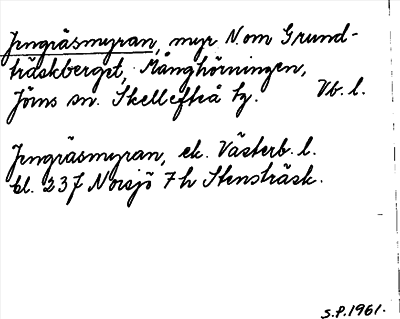 Jungräsmyran, myr N. om Grund-
träskberget, Månghörningen,
Jörns sn. Skellefteå tg. Vb. l.
Jungräsmyran, ek. Västerb. l.
bl. 237 Norsjö 7 h Stensträsk.
S.P. 1961.